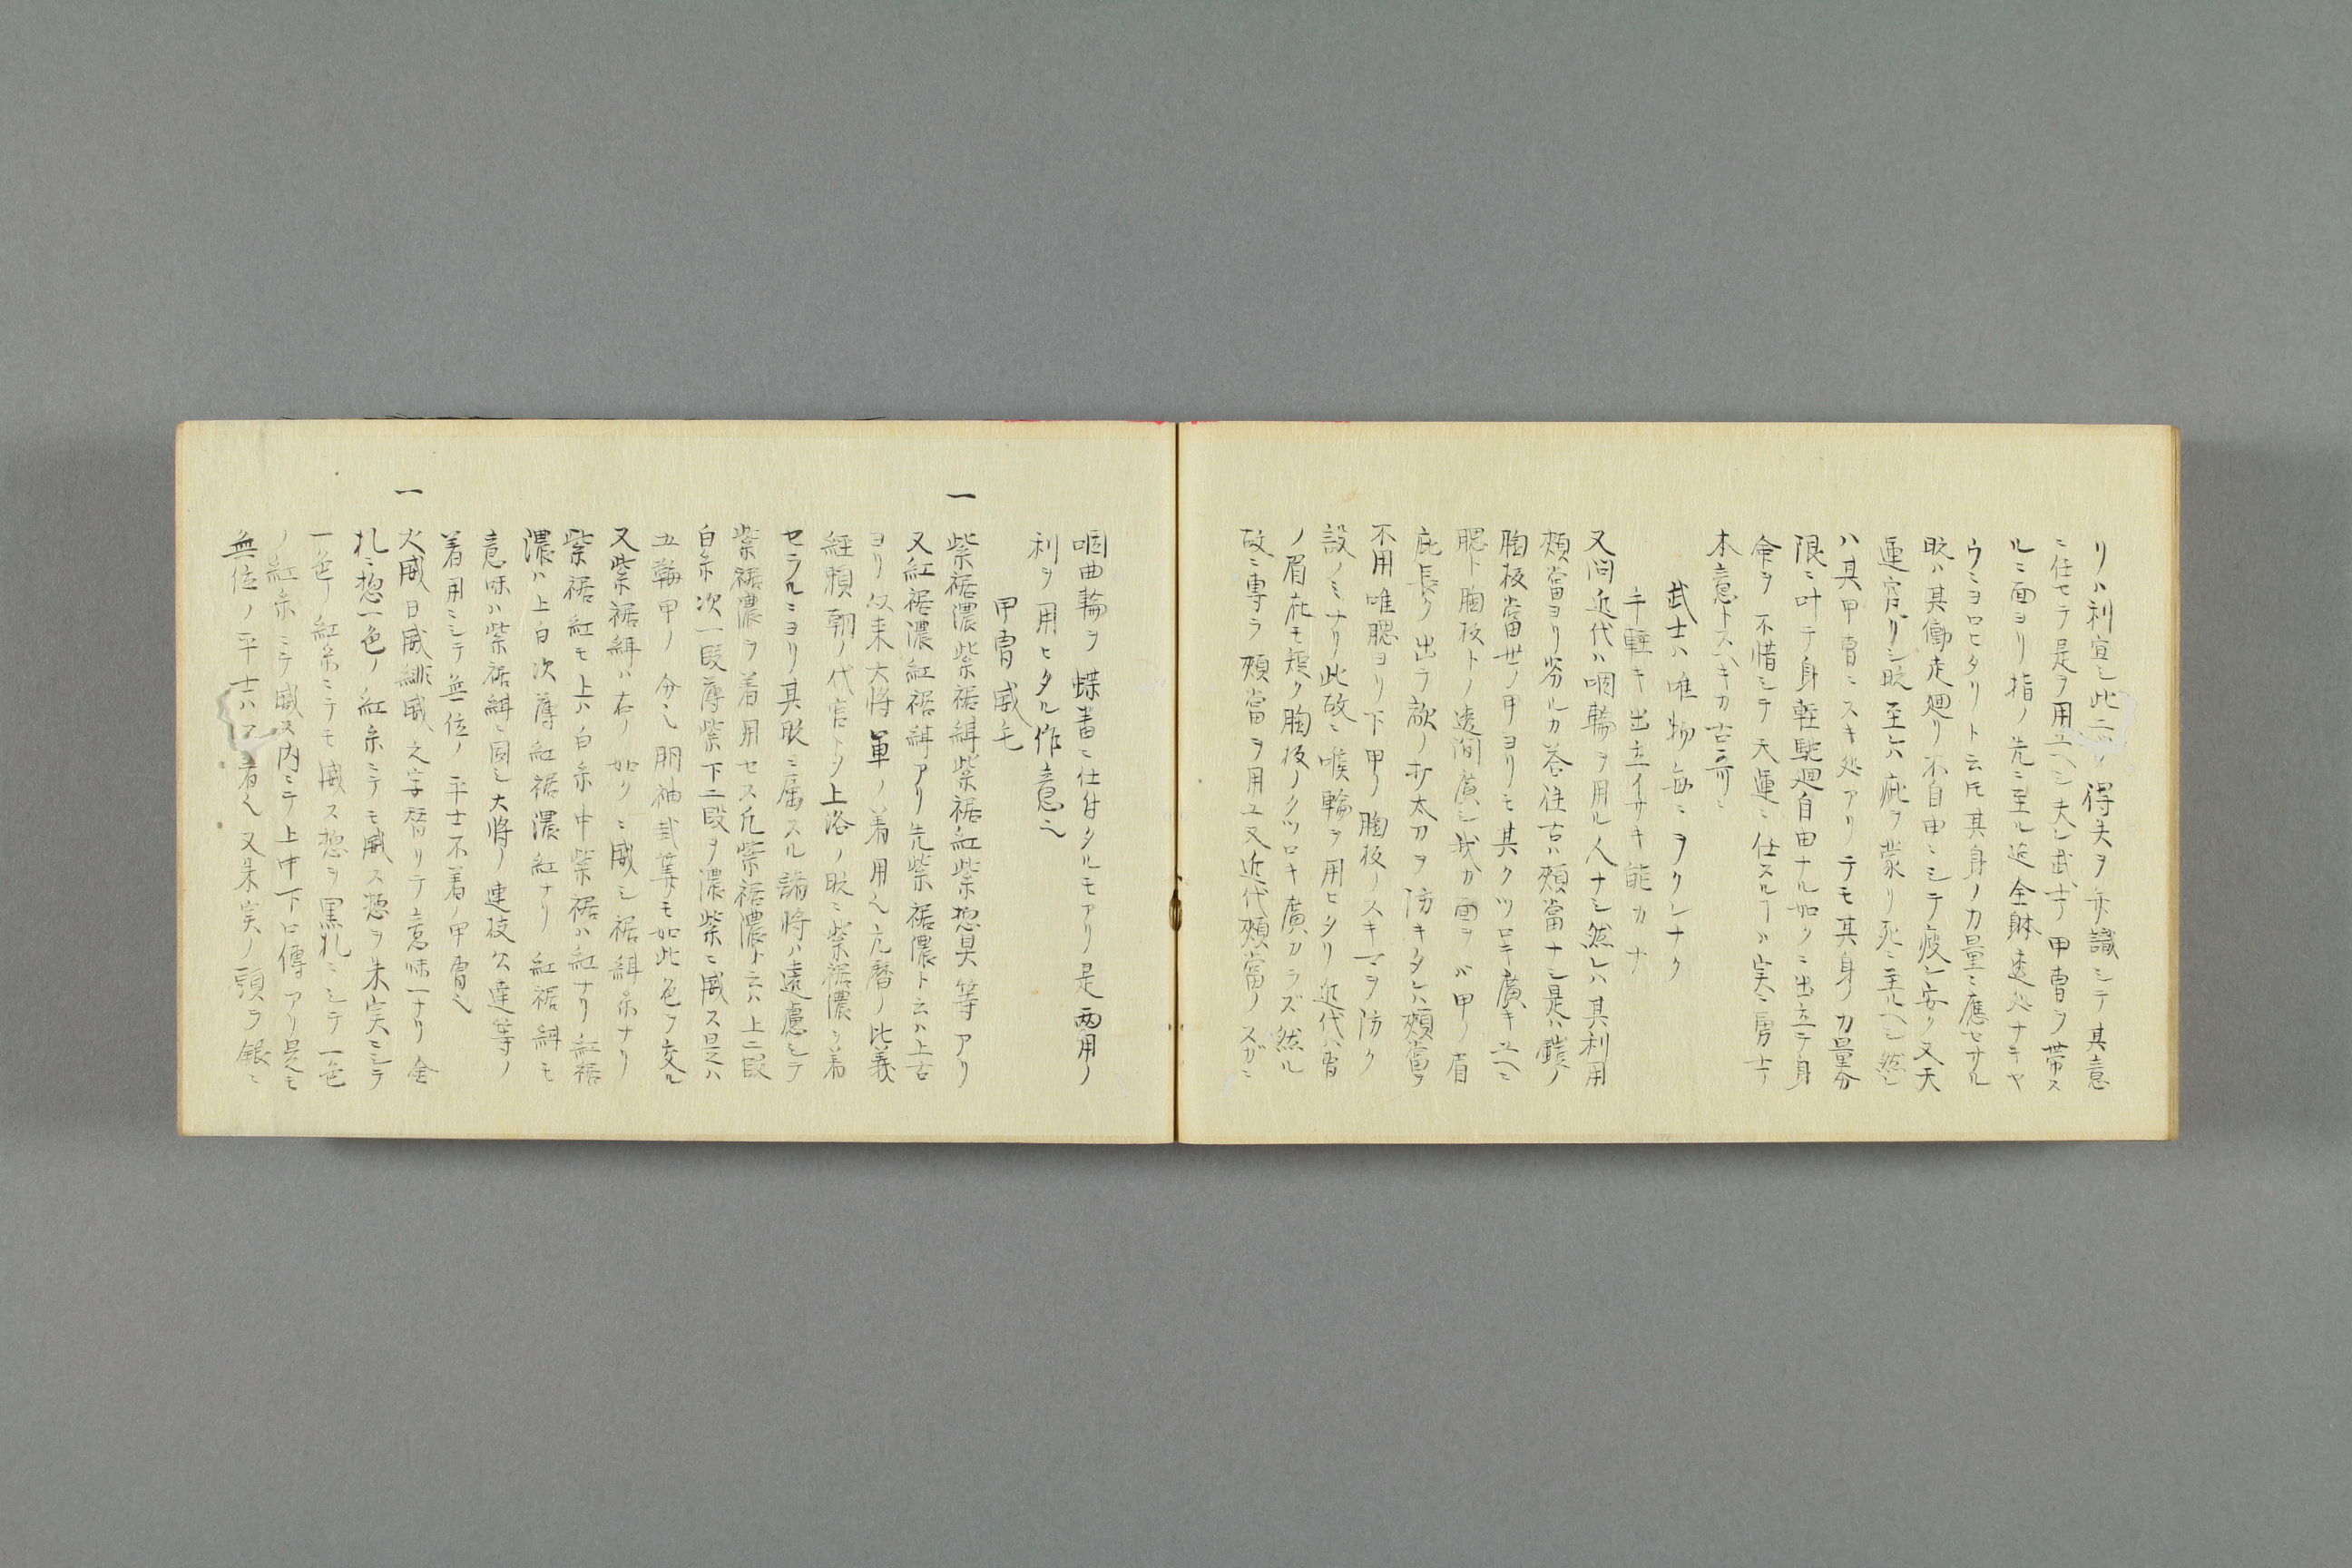 リハ利宜シ此二ツノ得失ヲ亦識シテ其意
ニ任セテ是ヲ用ユヘシ夫レ武士ノ甲冑ヲ帯ス
ルニ面ヨリ指ノ先ニ至ル迄全躰透処ナキヤ
ウニヨロヒタリト云氏其身ノ力量ニ應セサル
時ハ其働走廻リ不自由ニシテ疲レ安ク又天
運究リシ時至レハ疵ヲ蒙リ死ニ至ルヘシ然レ
ハ其甲冑ニスキ処アリテモ其身ノ力量分
限ニ叶テ身軽駈廻自由ナル如クニ出立テ身
命ヲ不惜シテ天運ニ任スルヿハ実ニ勇士ノ
本意トスヘキカ古哥ニ
武士ハ唯物毎ニヲクレナク
手軽キ出立イサキ能カナ
又問近代ハ咽輪ヲ用ル人ナシ然レハ其利用
頬當ヨリ劣ルカ答往古ハ頬當ナシ是ハ鎧ノ
胸板當世ノ甲ヨリモ其クツロキ廣キユヘニ
腮ト胸板トノ透間廣シ我カ面ヲハ甲ノ眉
庇長ク出テ敵ノ打太刀ヲ防キタレハ頬當ヲ
不用唯腮ヨリ下甲ノ胸板ノスキマヲ防ク
設ノミナリ此故ニ喉輪ヲ用ヒタリ近代ハ冑
ノ眉庇モ短ク胸板ノクツロキ廣カラズ然ル
故ニ專ラ頬當ヲ用ユ又近代頬當ノスガニ
咽曲輪ヲ蝶番ニ仕付タルモアリ是両用ノ
利ヲ用ヒタル作意也
甲冑威毛
一 紫裾濃紫裾緷紫裾紅紫惣具等アリ
又紅裾濃紅裾緷アリ先紫裾濃ト云ハ上古
ヨリ以来大将軍ノ着用也元暦ノ比義
経頼朝ノ代官トシ上洛ノ時ニ紫裾濃ヲ着
セラルニヨリ其時ニ属スル諸将ハ遠慮シテ
紫裾濃ヲ着用セス凡紫裾濃ト云ハ上二段
白糸次一段薄紫下二段ヲ濃紫ニ威ス是ハ
五鞠甲ノ分也胴袖弐等モ如此色ヲ交ル
又紫裾緷ハ右ノ如クニ威シ裾緷糸ナリ
紫裾紅モ上ハ白糸中紫裾ハ紅ナリ紅裾
濃ハ上白次薄紅裾濃紅ナリ紅裾緷モ
意味ハ紫裾緷ニ同シ大将ノ連枝公達等ノ
着用ニシテ無位ノ平士不着ノ甲冑也
一 火威日威緋威之字替リテ意味一ナリ金
札ニ惣一色ノ紅糸ニテモ威ス惣ヲ朱実ニシテ
一色ノ紅糸ニテモ威ス惣ヲ黒札ニシテ一色
ノ紅糸ニテ威ス内ニテ上中下ロ傳アリ是モ
無位ノ平士ハ不着也又朱実ノ頭ヲ銀ニ